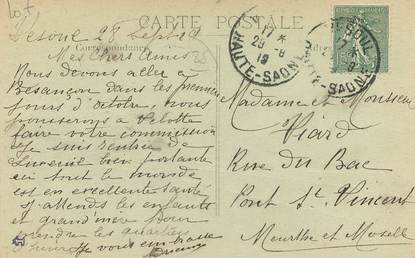 Lot
CARTE POSTALE
Correspondance
Vesoul 28 Sept 19
25
Mes Chers Amis
Nous devons aller à
Besançon dans les premiers
jours d'octobre, nous
pousserons à Velotte
faire votre commission
Je suis rentrée de
Luxeuil bien portante
ici tout le monde
est en excellente santé
J'attends les enfants
et grand'mère pour
prendre les quartiers
d'hiver. Je vous embrasse
17 *
29 -9
19
HAUTE-SAONE
VESOUL
17
HAUTE-SAONE
Madame et Monsieur
Viard
Rue du Bac
Pont St Vincent
Meurthe et Moselle